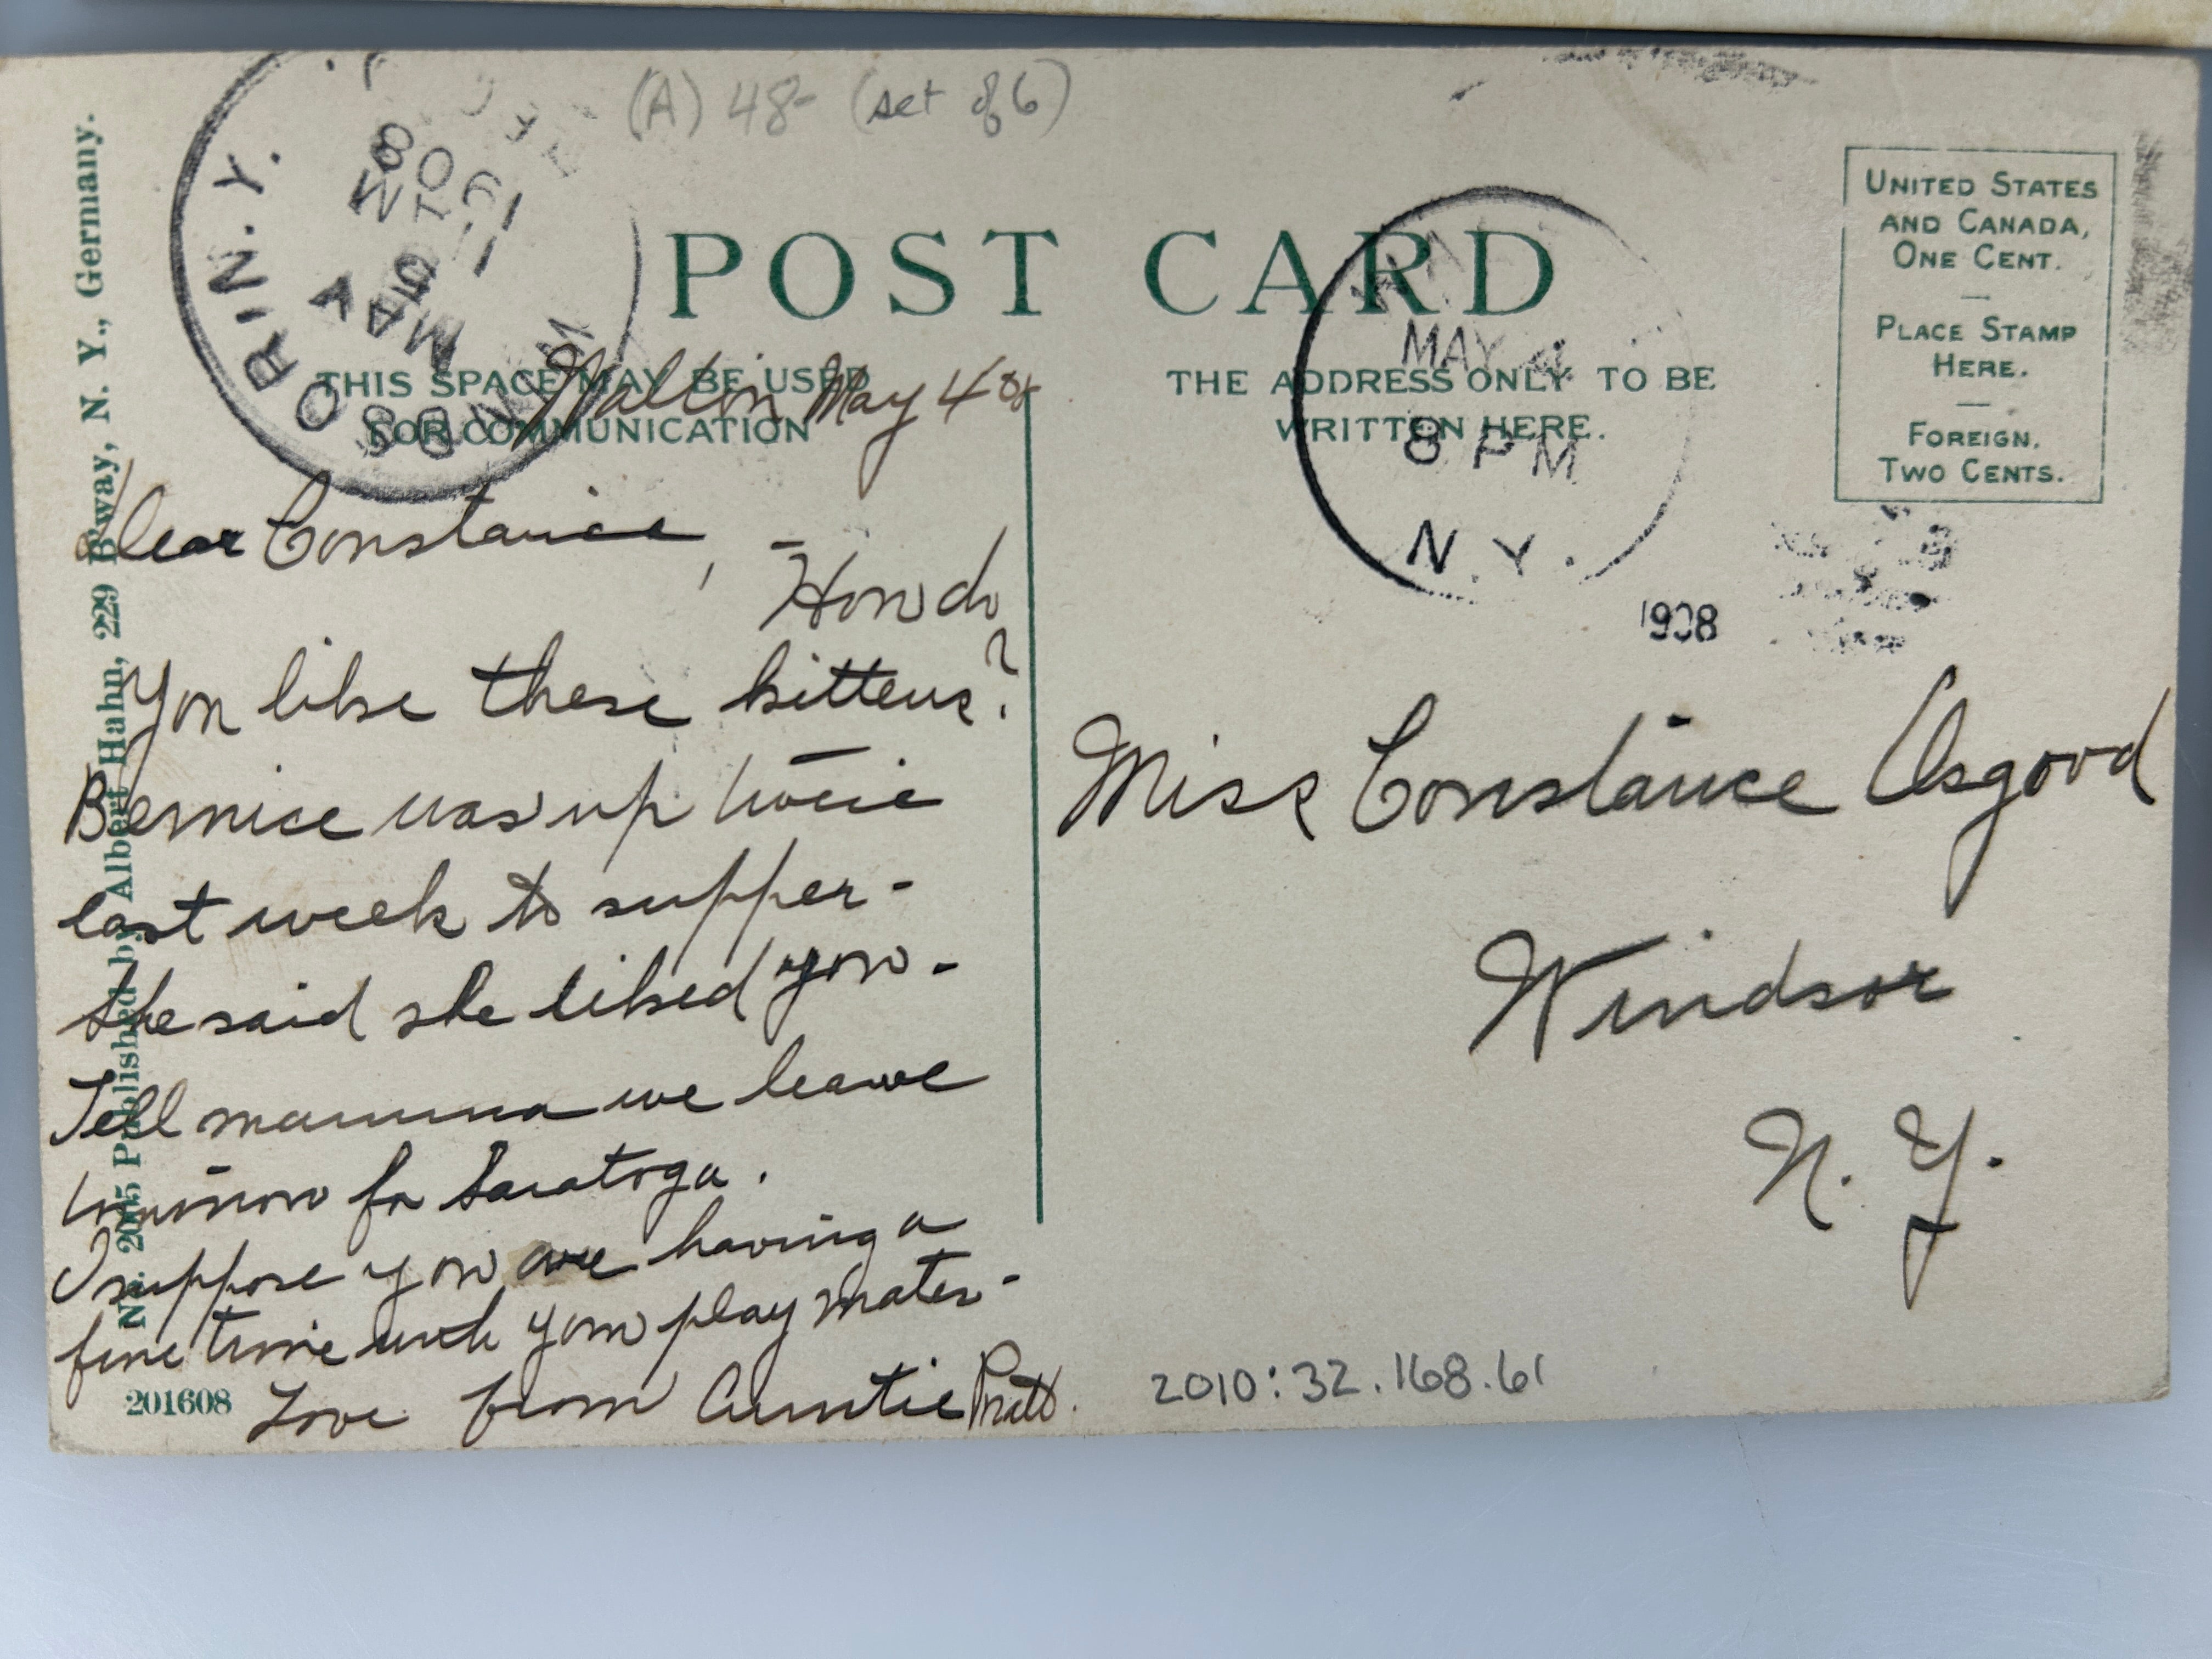 (A) 48- (set of 6)
POST CARD
THIS SPACE MAY BE USED
FOR COMMUNICATION
THE ADDRESS ONLY TO BE
WRITTEN HERE.
UNITED STATES
AND CANADA,
ONE CENT.
PLACE STAMP
HERE.
FOREIGN.
TWO CENTS.
WINDSOR N.Y.
MAY 5
1908
MAY 4
8 PM
N.Y.
1908
Walton May 4 08
Dear Constance, -
How do
you like these kittens?
Bernice was up twice
last week to supper-
She said she liked you-
Tell mamma we leave
tomorrow for Saratoga.
I suppose you are having a
fine time with your play mates-
Love from Auntie Pratt.
Miss Constance Osgood
Windsor
N. Y.
No. 2005 Published by Albert Hahn, 229 B'way, N. Y., Germany.
201608
2010:32.168.61